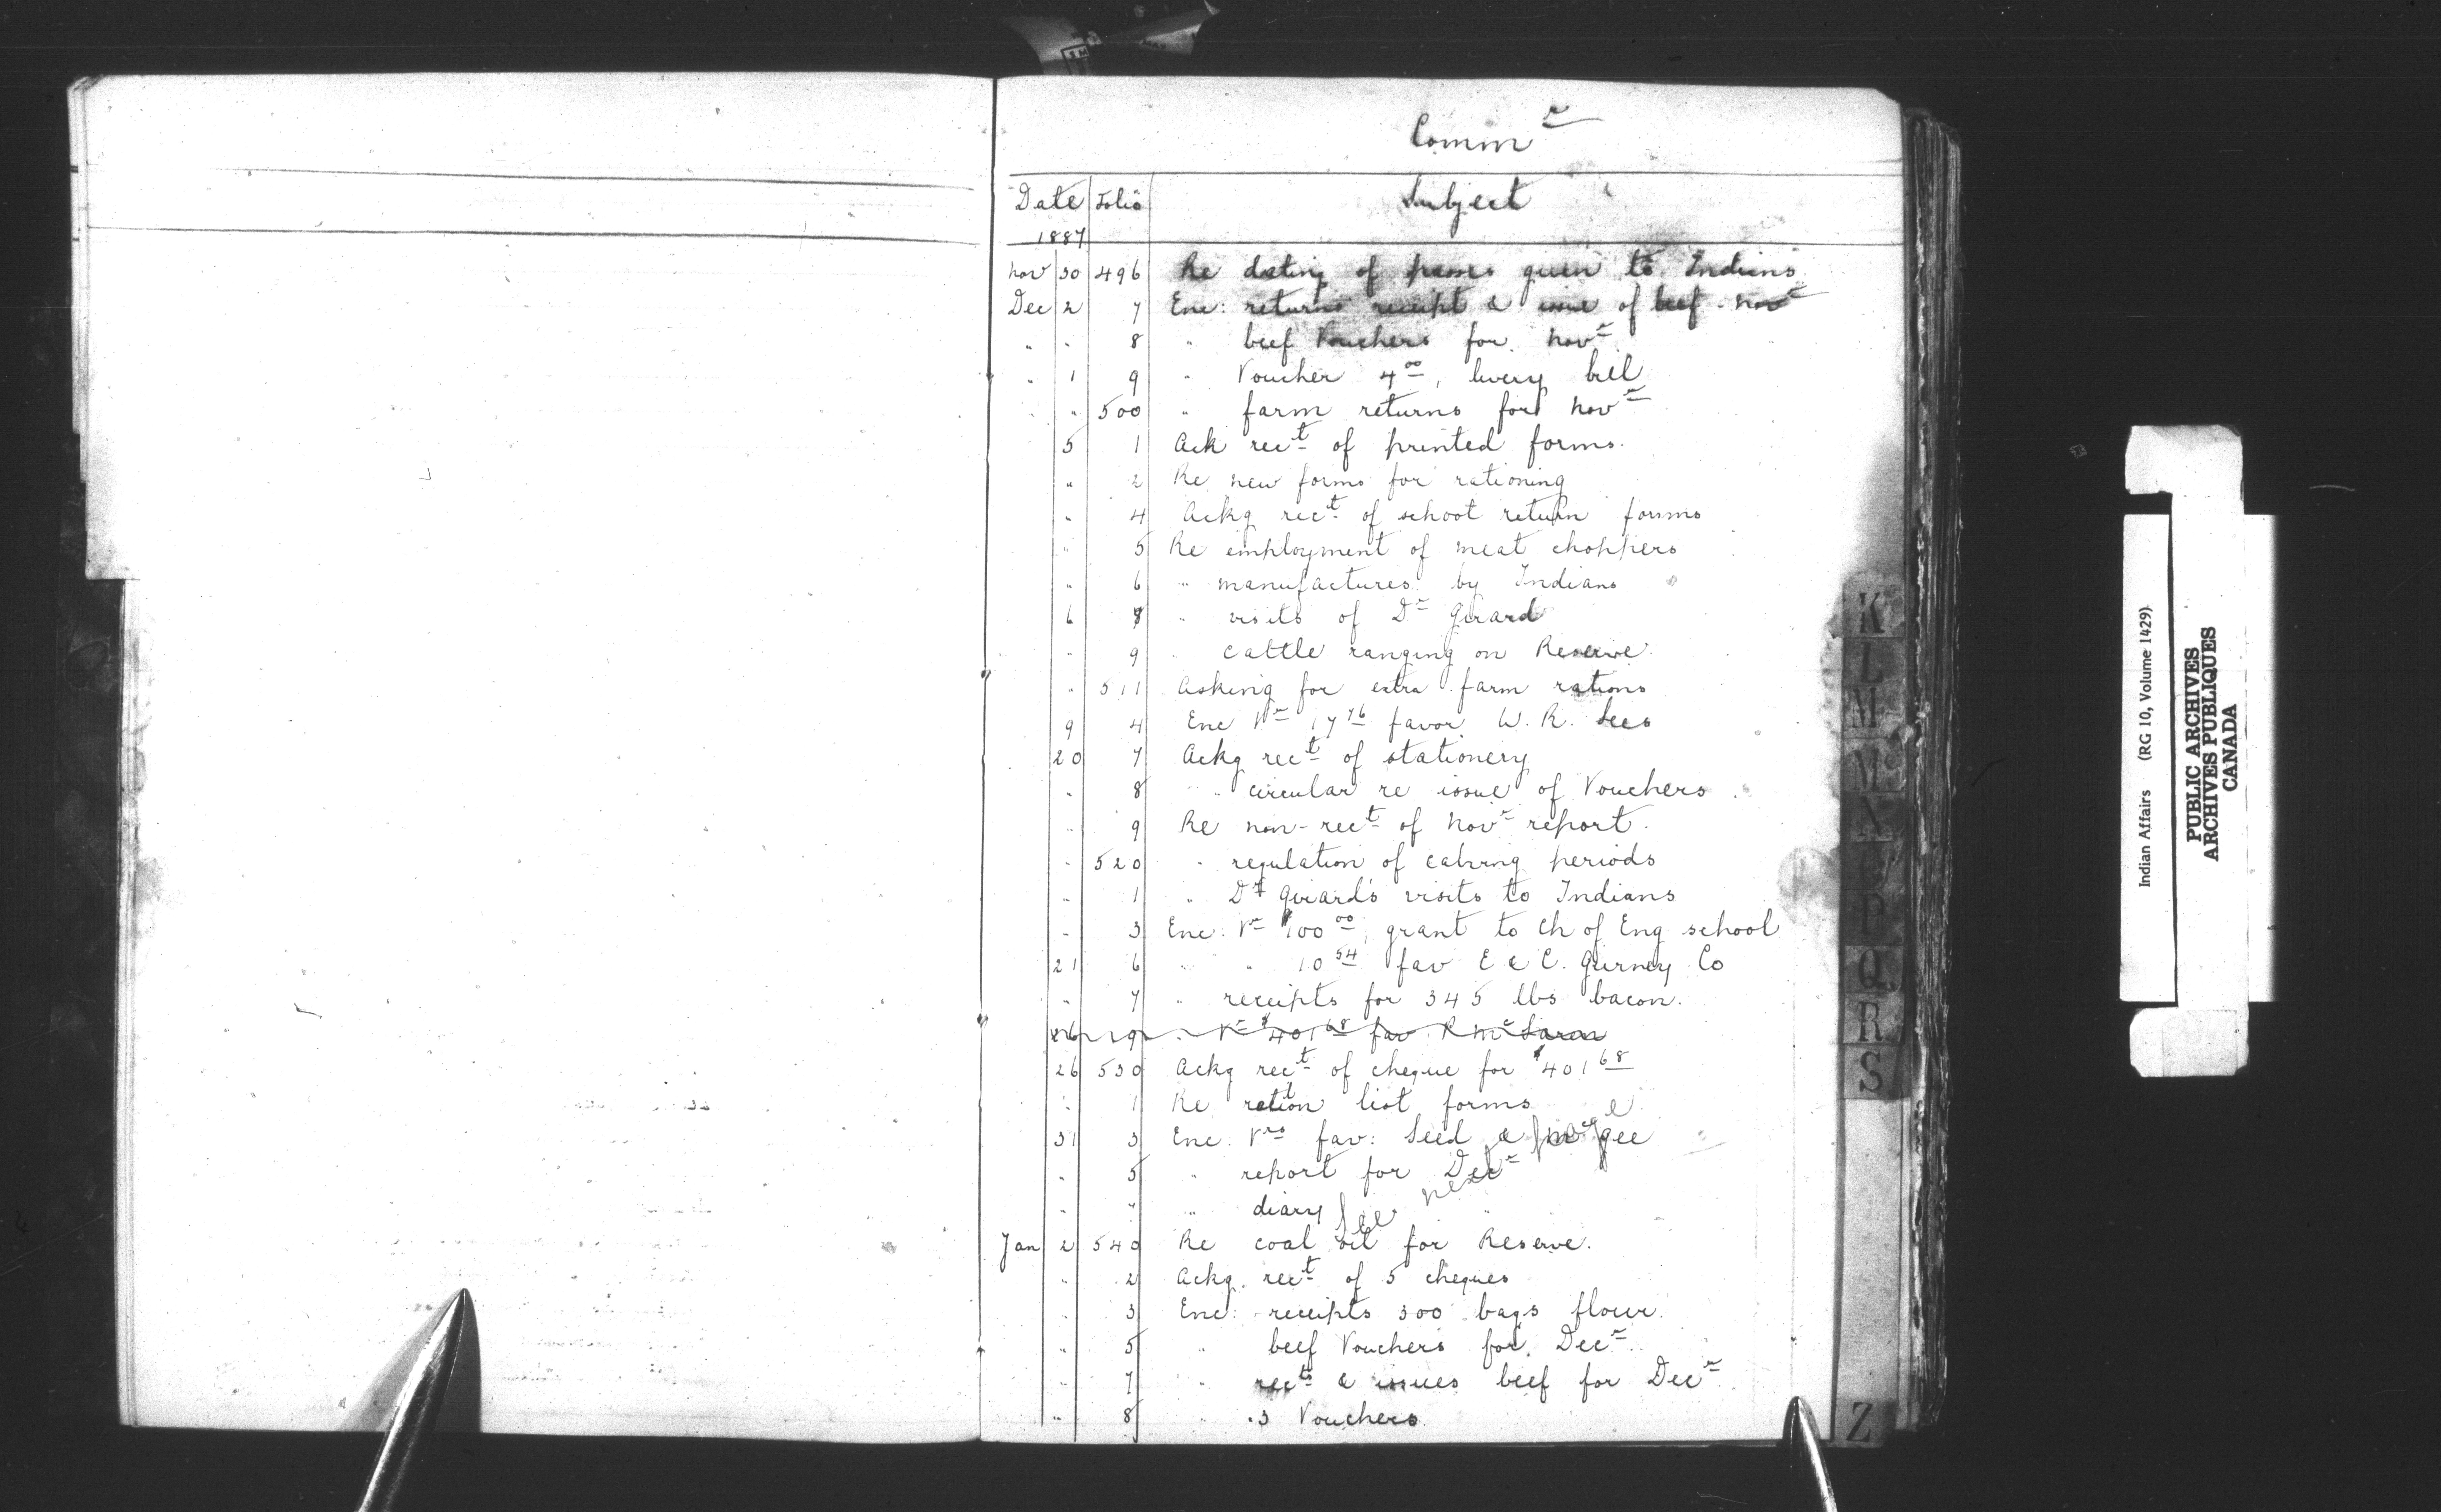 Commr
Date Folio Subject
1887
Nov 30 496 Re dating of passes given to Indians
Dec 2 7 Enc: returns receipt & issue of beef - Novr
" " 8 " beef Vouchers for Novr
" 1 9 " Voucher 4.00, livery bill
" 500 " farm returns for Novr
5 1 Ack rect of printed forms.
" 2 Re new forms for rationing
" 4 Ackg rect of school return forms
" 5 Re employment of meat choppers
" 6 " manufactures by Indians
6 8 " visits of Dr Girard
" 9 " cattle ranging on Reserve.
" 511 Asking for extra farm rations
9 4 Enc Vr 17.76 favor W. R. Lees
20 7 Ackg rect of stationery
" 8 " circular re issue of Vouchers
" 9 Re non-rect of Novr report.
" 520 " regulation of calving periods
" 1 " Dr Girard's visits to Indians
" 3 Enc. Vr $100.00, grant to Ch of Eng school
21 6 " " 10.54 fav E & C. Gurney Co
" 7 " receipts for 345 lbs bacon.
26 9 " Vr $401.68 fav R Mc Laren
26 530 Ackg rect of cheque for $401.68
" 1 Re ration list forms
31 3 Enc. Vrs fav: Seed & gee
" 5 " report for Decr
" 7 " diary " "
see next page
Jan 2 540 Re coal oil for Reserve.
" 2 Ackg. rect of 5 cheques
" 3 Enc: receipts 300 bags flour.
" 5 " beef Vouchers for Decr.
" 7 " rects & issues beef for Decr
" 8 " 3 Vouchers.
K
L
M
Mc
N
O
P
Q
R
S
Z
Indian Affairs (RG 10, Volume 1429)
PUBLIC ARCHIVES
ARCHIVES PUBLIQUES
CANADA